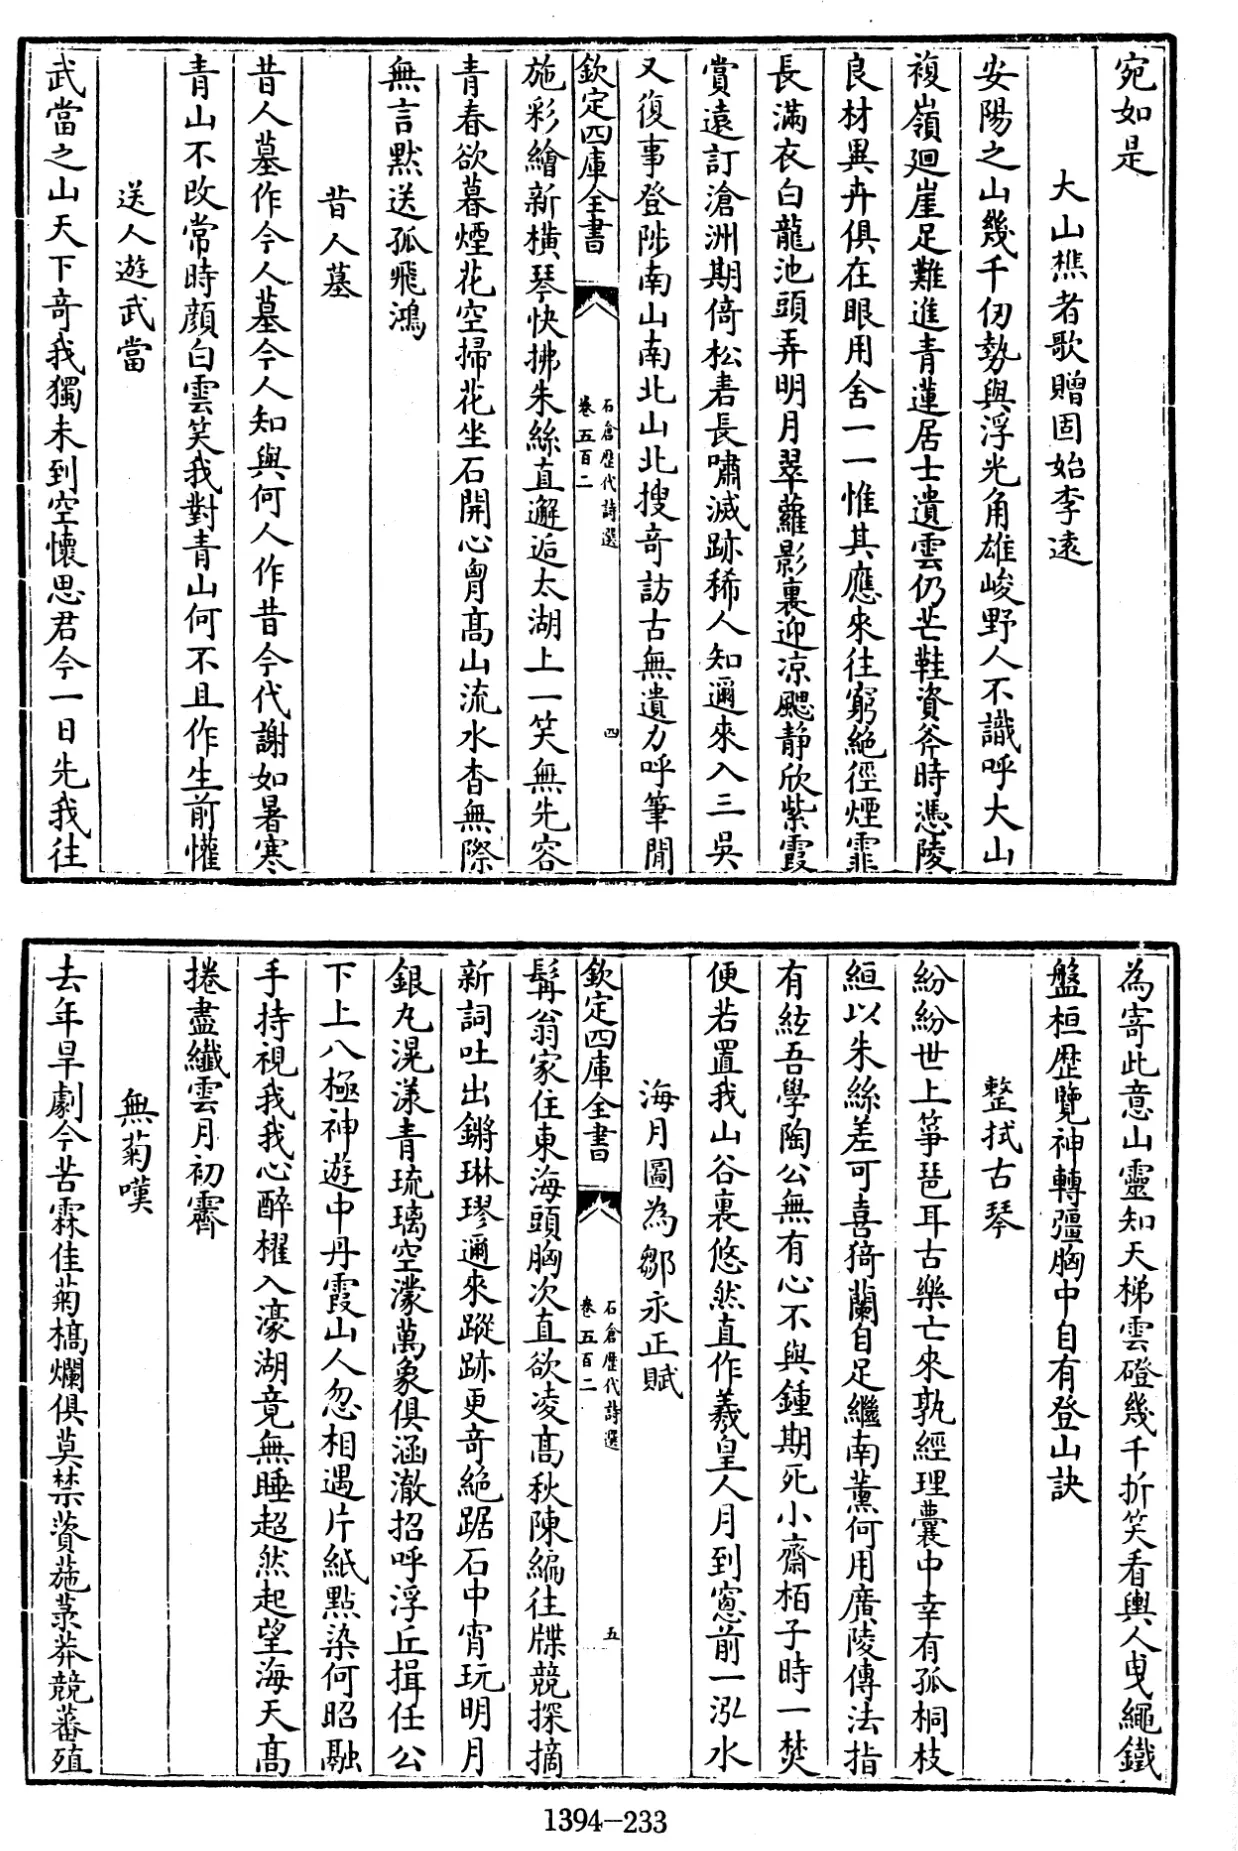 宛如是
大山樵者歌贈固始李遠
安陽之山幾千仞勢與浮光角雄峻野人不識呼大山
複嶺廻崖足難進青蓮居士遺雲仍芒鞋資斧時憑陵
良材異卉俱在眼用舍一一惟其應來往窮絶徑煙霏
長滿衣白龍池頭弄明月翠蘿影裏迎凉颸靜欣紫霞
賞遠訂滄洲期倚松砉長嘯滅跡稀人知邇來入三吳
又復事登陟南山南北山北搜奇訪古無遺力呼筆閒
欽定四庫全書
石倉歷代詩選
卷五百二
四
施彩繪新横琴快拂朱絲直邂逅太湖上一笑無先容
青春欲暮煙花空掃花坐石開心胷高山流水杳無際
無言默送孤飛鴻
昔人墓
昔人墓作今人墓今人知與何人作昔今代謝如暑寒
青山不改常時顔白雲笑我對青山何不且作生前懽
送人遊武當
武當之山天下奇我獨未到空懷思君今一日先我往
為寄此意山靈知天梯雲磴幾千折笑看輿人曳繩鐵
盤桓歴覽神轉彊胸中自有登山訣
整拭古琴
紛紛世上箏琶耳古樂亡來孰經理囊中幸有孤桐枝
絙以朱絲差可喜猗蘭自足繼南薰何用廣陵傳法指
有絃吾學陶公無有心不與鍾期死小齋栢子時一焚
便若置我山谷裏悠然直作羲皇人月到窻前一泓水
海月圖為鄒永正賦
欽定四庫全書
石倉歷代詩選
卷五百二
五
髯翁家住東海頭胸次直欲凌高秋陳編往牒競探摘
新詞吐出鏘琳璆邇來蹤跡更奇絶踞石中宵玩明月
銀丸滉漾青琉璃空濛萬象俱涵澈招呼浮丘揖任公
下上八極神遊中丹霞山人忽相遇片紙點染何昭融
手持視我我心醉櫂入濠湖竟無睡超然起望海天高
捲盡纖雲月初霽
無菊嘆
去年旱劇今苦霖佳菊槁爛俱莫禁薋葹菉莽競蕃殖
1394-233